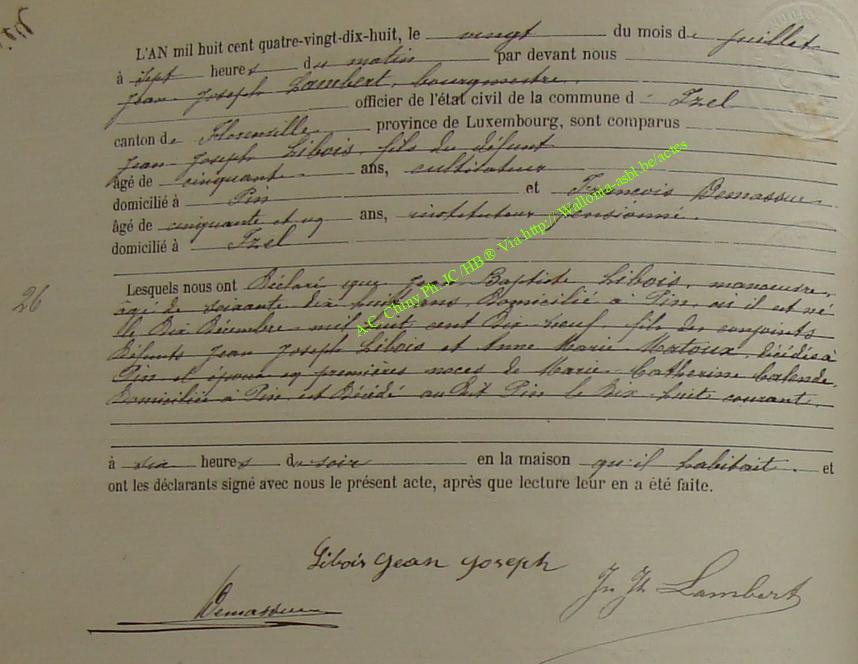 L'AN mil huit cent quatre-vingt-dix-huit, le vingt du mois de juillet
à sept heures du matin par devant nous
Jean Joseph Lambert, bourgmestre,
officier de l'état civil de la commune d Izel
canton de Florenville province de Luxembourg, sont comparus
Jean Joseph Libois, fils du défunt
âgé de cinquante ans, cultivateur
domicilié à Pin et François Demasseu
âgé de cinquante et un ans, instituteur pensionné.
domicilié à Izel
Lesquels nous ont Déclaré que Jean Baptiste Libois, manoeuvre,
âgé de soixante dix huit ans, Domicilié à Pin, où il est né
26
le Dix Décembre mil huit cent Dix neuf, fils des conjoints
Défunts Jean Joseph Libois et Anne Marie Matoux, décédés à
Pin et époux en premières noces de Marie Catherine Calende,
Domiciliée à Pin, est Décédé au dit Pin le Dix huit courant
à six heures du soir en la maison qu'il habitait. et
ont les déclarants signé avec nous le présent acte, après que lecture leur en a été faite.
Libois Jean Joseph
Jn Jh Lambert
Demasseu
A-C. Chiny Ph. JC/HB ® Via http://Wallonia-asbl.be/actes